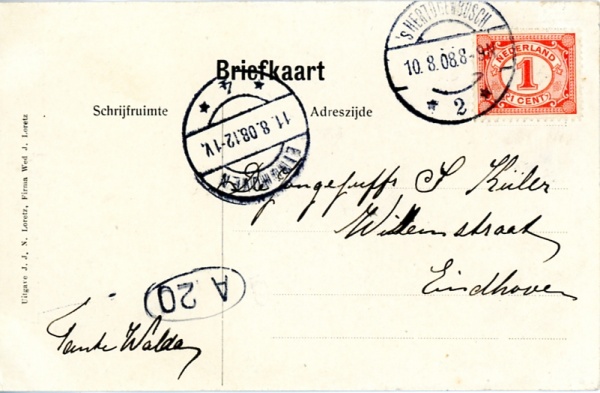 'S HERTOGENBOSCH
10.8.08.8-9N
* 2 *
NEDERLAND
1
(1 CENT)
Briefkaart
Schrijfruimte
Adreszijde
* 1 *
11.8.08.12-1V.
EINDHOVEN
De S Küler
Willemstraat
Eindhoven
A 20
Tante Walda
Uitgave J. J. N. Loretz, Firma Wed J. Loretz